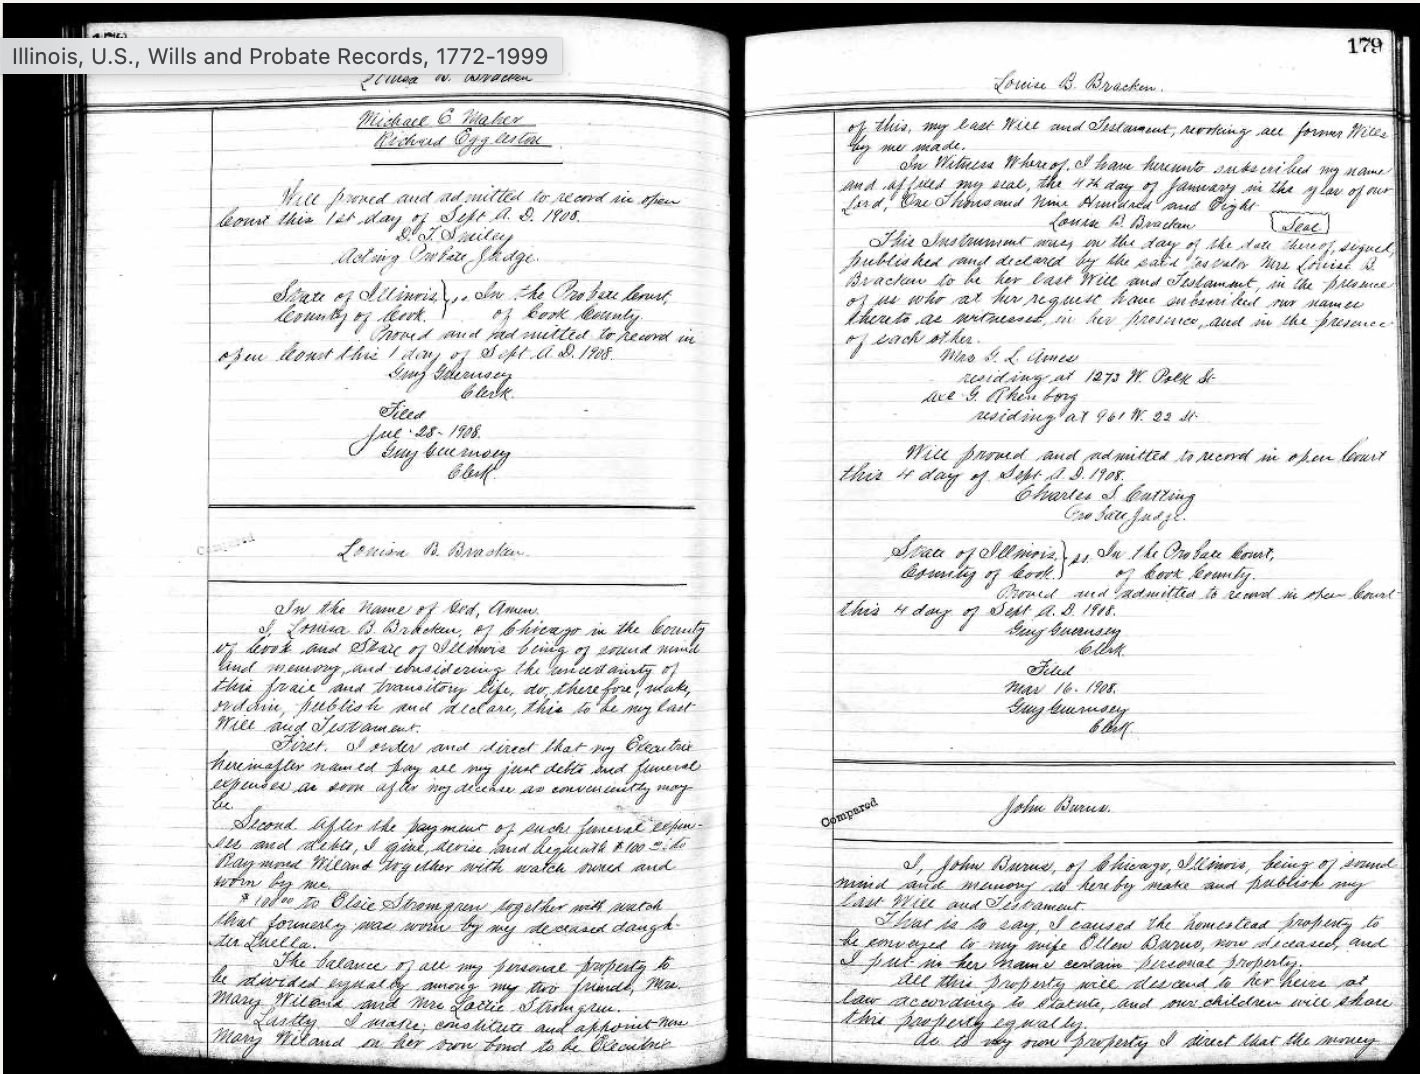 Illinois, U.S., Wills and Probate Records, 1772-1999
Louisa B. Bracken
Michael C Maher
Richard Eggleston
Will proved and admitted to record in open
Court this 1st day of Sept A. D. 1908.
D. T. Smiley
Acting Probate Judge.
State of Illinois } ss In the Probate Court,
County of Cook. of Cook County.
Proved and admitted to record in
open Court this 1 day of Sept A. D. 1908.
Guy Guernsey
Clerk.
Filed
Jul - 28 - 1908.
Guy Guernsey
Clerk.
Compared
Louisa B. Bracken.
In the Name of God, Amen.
I, Louisa B. Bracken, of Chicago in the County
of Cook and State of Illinois being of sound mind
and memory, and considering the uncertainty of
this frail and transitory life, do, therefore, make,
ordain, publish and declare, this to be my last
Will and Testament.
First. I order and direct that my Executrix
hereinafter named pay all my just debts and funeral
expenses as soon after my decease as conveniently may
be.
Second After the payment of such funeral expen-
ses and debts, I give, devise and bequeath $100 00 to
Raymond Wieland together with watch owned and
worn by me.
$100 00 to Elsie Stromgren together with watch
that formerly was worn by my deceased daugh-
ter Luella.
The balance of all my personal property to
be divided equally among my two friends, Mrs.
Mary Wieland and Mrs Lottie Stromgren.
Lastly I make, constitute and appoint Mrs
Mary Wieland on her own bond to be Executrix
179
Louise B. Bracken.
of this, my last Will and Testament, revoking all former Wills
by me made.
In Witness Whereof, I have hereunto subscribed my name
and affixed my seal, the 4th day of January in the year of our
Lord, One Thousand Nine Hundred and Eight
Louisa B. Bracken Seal
This Instrument was, on the day of the date thereof, signed,
published and declared by the said testator Mrs Louise B.
Bracken to be her last Will and Testament, in the presence
of us who at her request have subscribed our names
thereto as witnesses, in her presence, and in the presence
of each other.
Mrs G. L. Ames
residing at 1273 W. Polk St.
Axel G. Rhenborg
residing at 961 W. 22 St.
Will proved and admitted to record in open Court
this 4 day of Sept A. D. 1908.
Charles S. Cutting
Probate Judge.
State of Illinois } ss. In the Probate Court,
County of Cook. of Cook County.
Proved and admitted to record in open Court
this 4 day of Sept A. D. 1908.
Guy Guernsey
Clerk.
Filed
Mar 16 - 1908.
Guy Guernsey
Clerk.
Compared
John Burns.
I, John Burns, of Chicago, Illinois, being of sound
mind and memory do hereby make and publish my
last Will and Testament.
That is to say, I caused the homestead property to
be conveyed to my wife Ellen Burns, now deceased, and
I put in her name certain personal property.
All this property will descend to her heirs at
law according to Statute, and our children will share
this property equally.
As to my own property I direct that the money